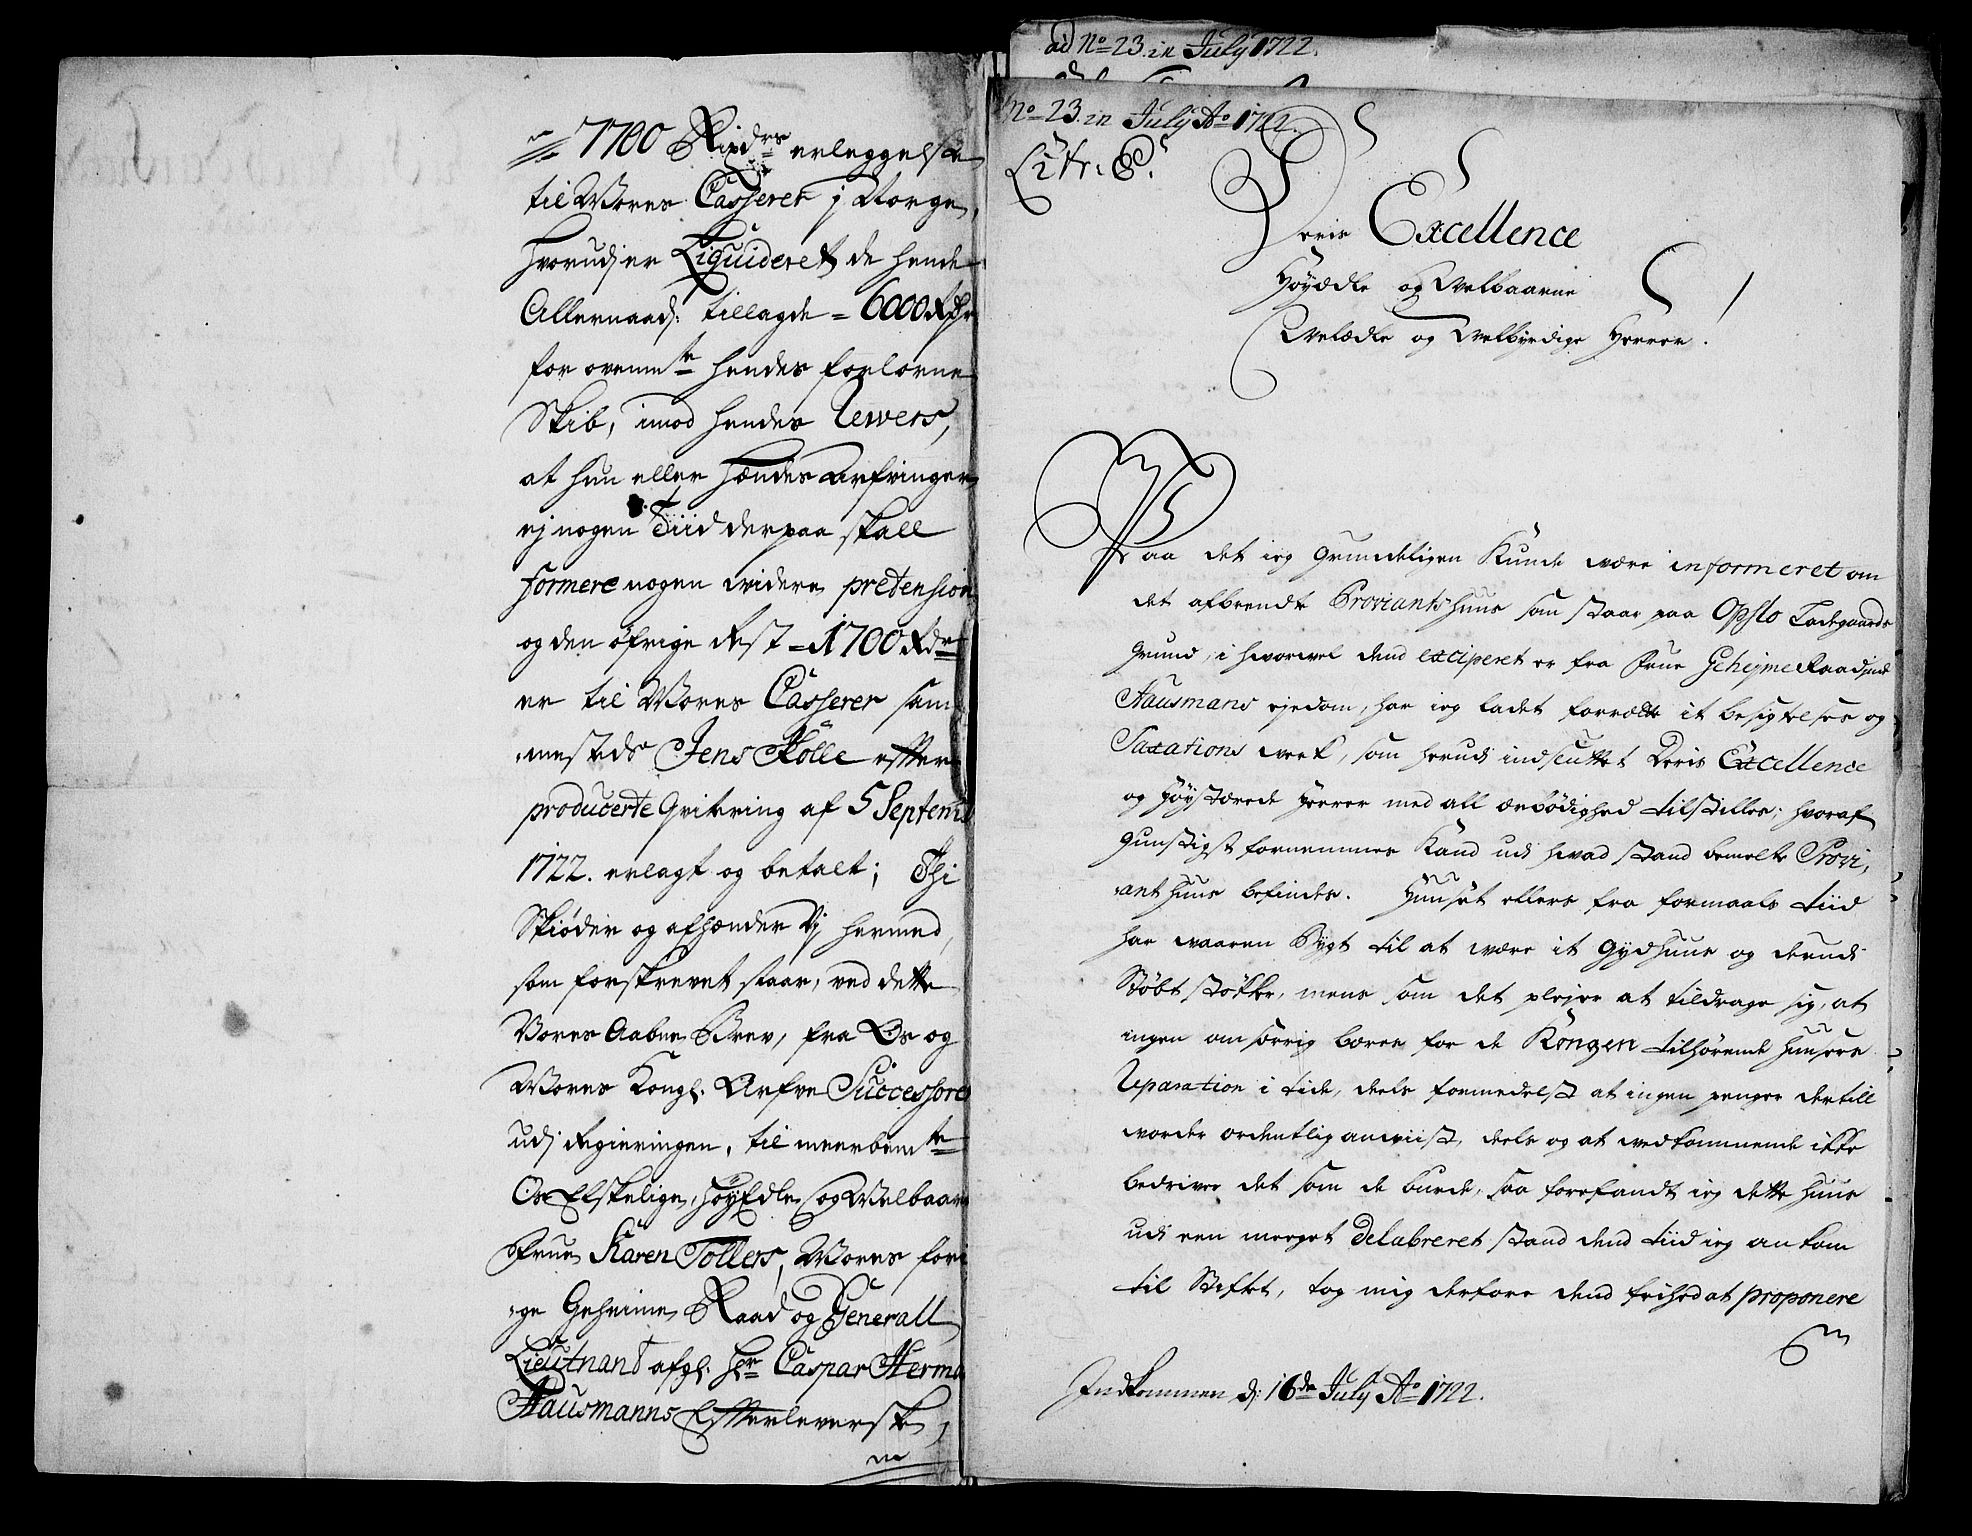 = 7700 Rixdrs erleggelse
til Vores Casserer j Norge,
hvorudj er Liquideret de hende
Allernaadj: tillagde = 6000 Rdr
for ovenmte hendes forlorne
Skib, imod hendes Revers,
at hun eller hændes Arfvinger
ej nogen Tiid derpaa skall
formere nogen videre pretension
og den öfrige Rest = 1700 Rdr
er til Vores Casserer sam¬
mesteds Jens Kölle effter
producerte Qvitering af 5 Septemb
1722. erlagt og betalt; Thi
Skiøder og afhænder Vj hermed,
som forskrevet staar, ved dette
Vores Aabne Brev, fra Os og
Vores Kongl: Arfve Successorer
udj Regieringen, til meerbemte
Os Elskelige, HöyEdle og Velbaarne
Frue Karen Tollers, Vores fori¬
ge Geheime Raad og Generall
Lieutnant afgl: Hr Caspar Herman
Hausmanns Effterleverske,
ad No 23. in July 1722.
No 23. in July Ao 1722.
Litr: E.
Deris Excellence
Höyædle og Velbaarne
Velædle og Velbyrdige Herrer.
Paa det ieg grundeligen Kunde være informeret om
det afbrendte Proviantshuus som staar paa Opslo Ladegaards
grund, i hvorvel dend exciperet er fra Frue GehejmeRaadinde
Hausmans ejedom, har ieg ladet forrætte it besigtelses og
Taxations værk, som herudi indsluttet Deris Excellence
og höystærede Herrer med all ærbödighed tilstilles; hvoraf
gunstigst fornemmes Kand udi hvad stand bemelte Provi¬
ant huus befindes. Huuset ellers fra formaals tiid
har waaren Bygt til at være it gydhuus og derudi
Stöbt støkker, mens som det plejer at tildrage sig, at
ingen omsorrig bæres for de Kongen tilhørende Huuses
Reparation i tide, deels formedelst at ingen penger dertill
vorder ordentlig anviist, deels og at vedkommende ikke
bedriver det som de burde, saa forefandt ieg dette huus
udi een meeget delabreret stand dend tiid ieg ankom
til Stiftet, tog mig derfore dend frihed at proponere
Indkommen dj: 16de July Ao 1722.